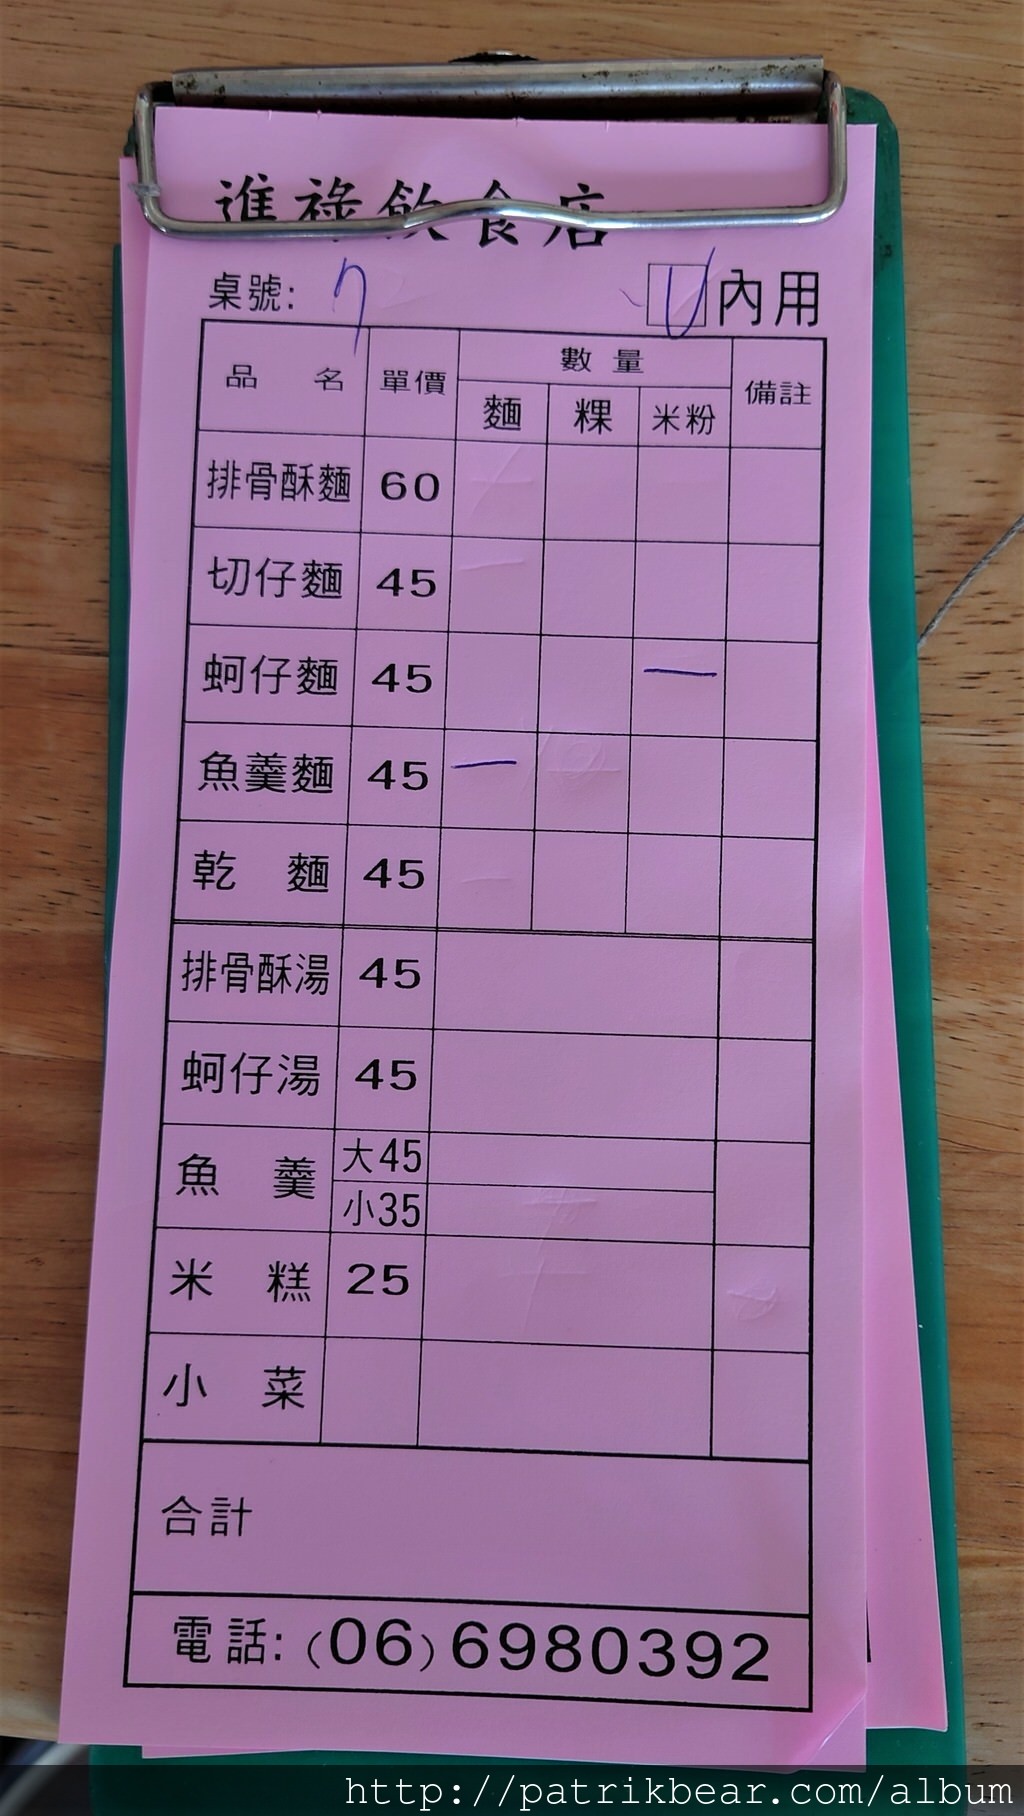 進祿飲食店
桌號: 7 V 內用
品名 單價 數量 備註
麵 粿 米粉
排骨酥麵 60
切仔麵 45
蚵仔麵 45 一
魚羹麵 45 一
乾麵 45
排骨酥湯 45
蚵仔湯 45
魚羹 大45
小35
米糕 25
小菜
合計
電話: (06) 6980392
http://patrikbear.com/album